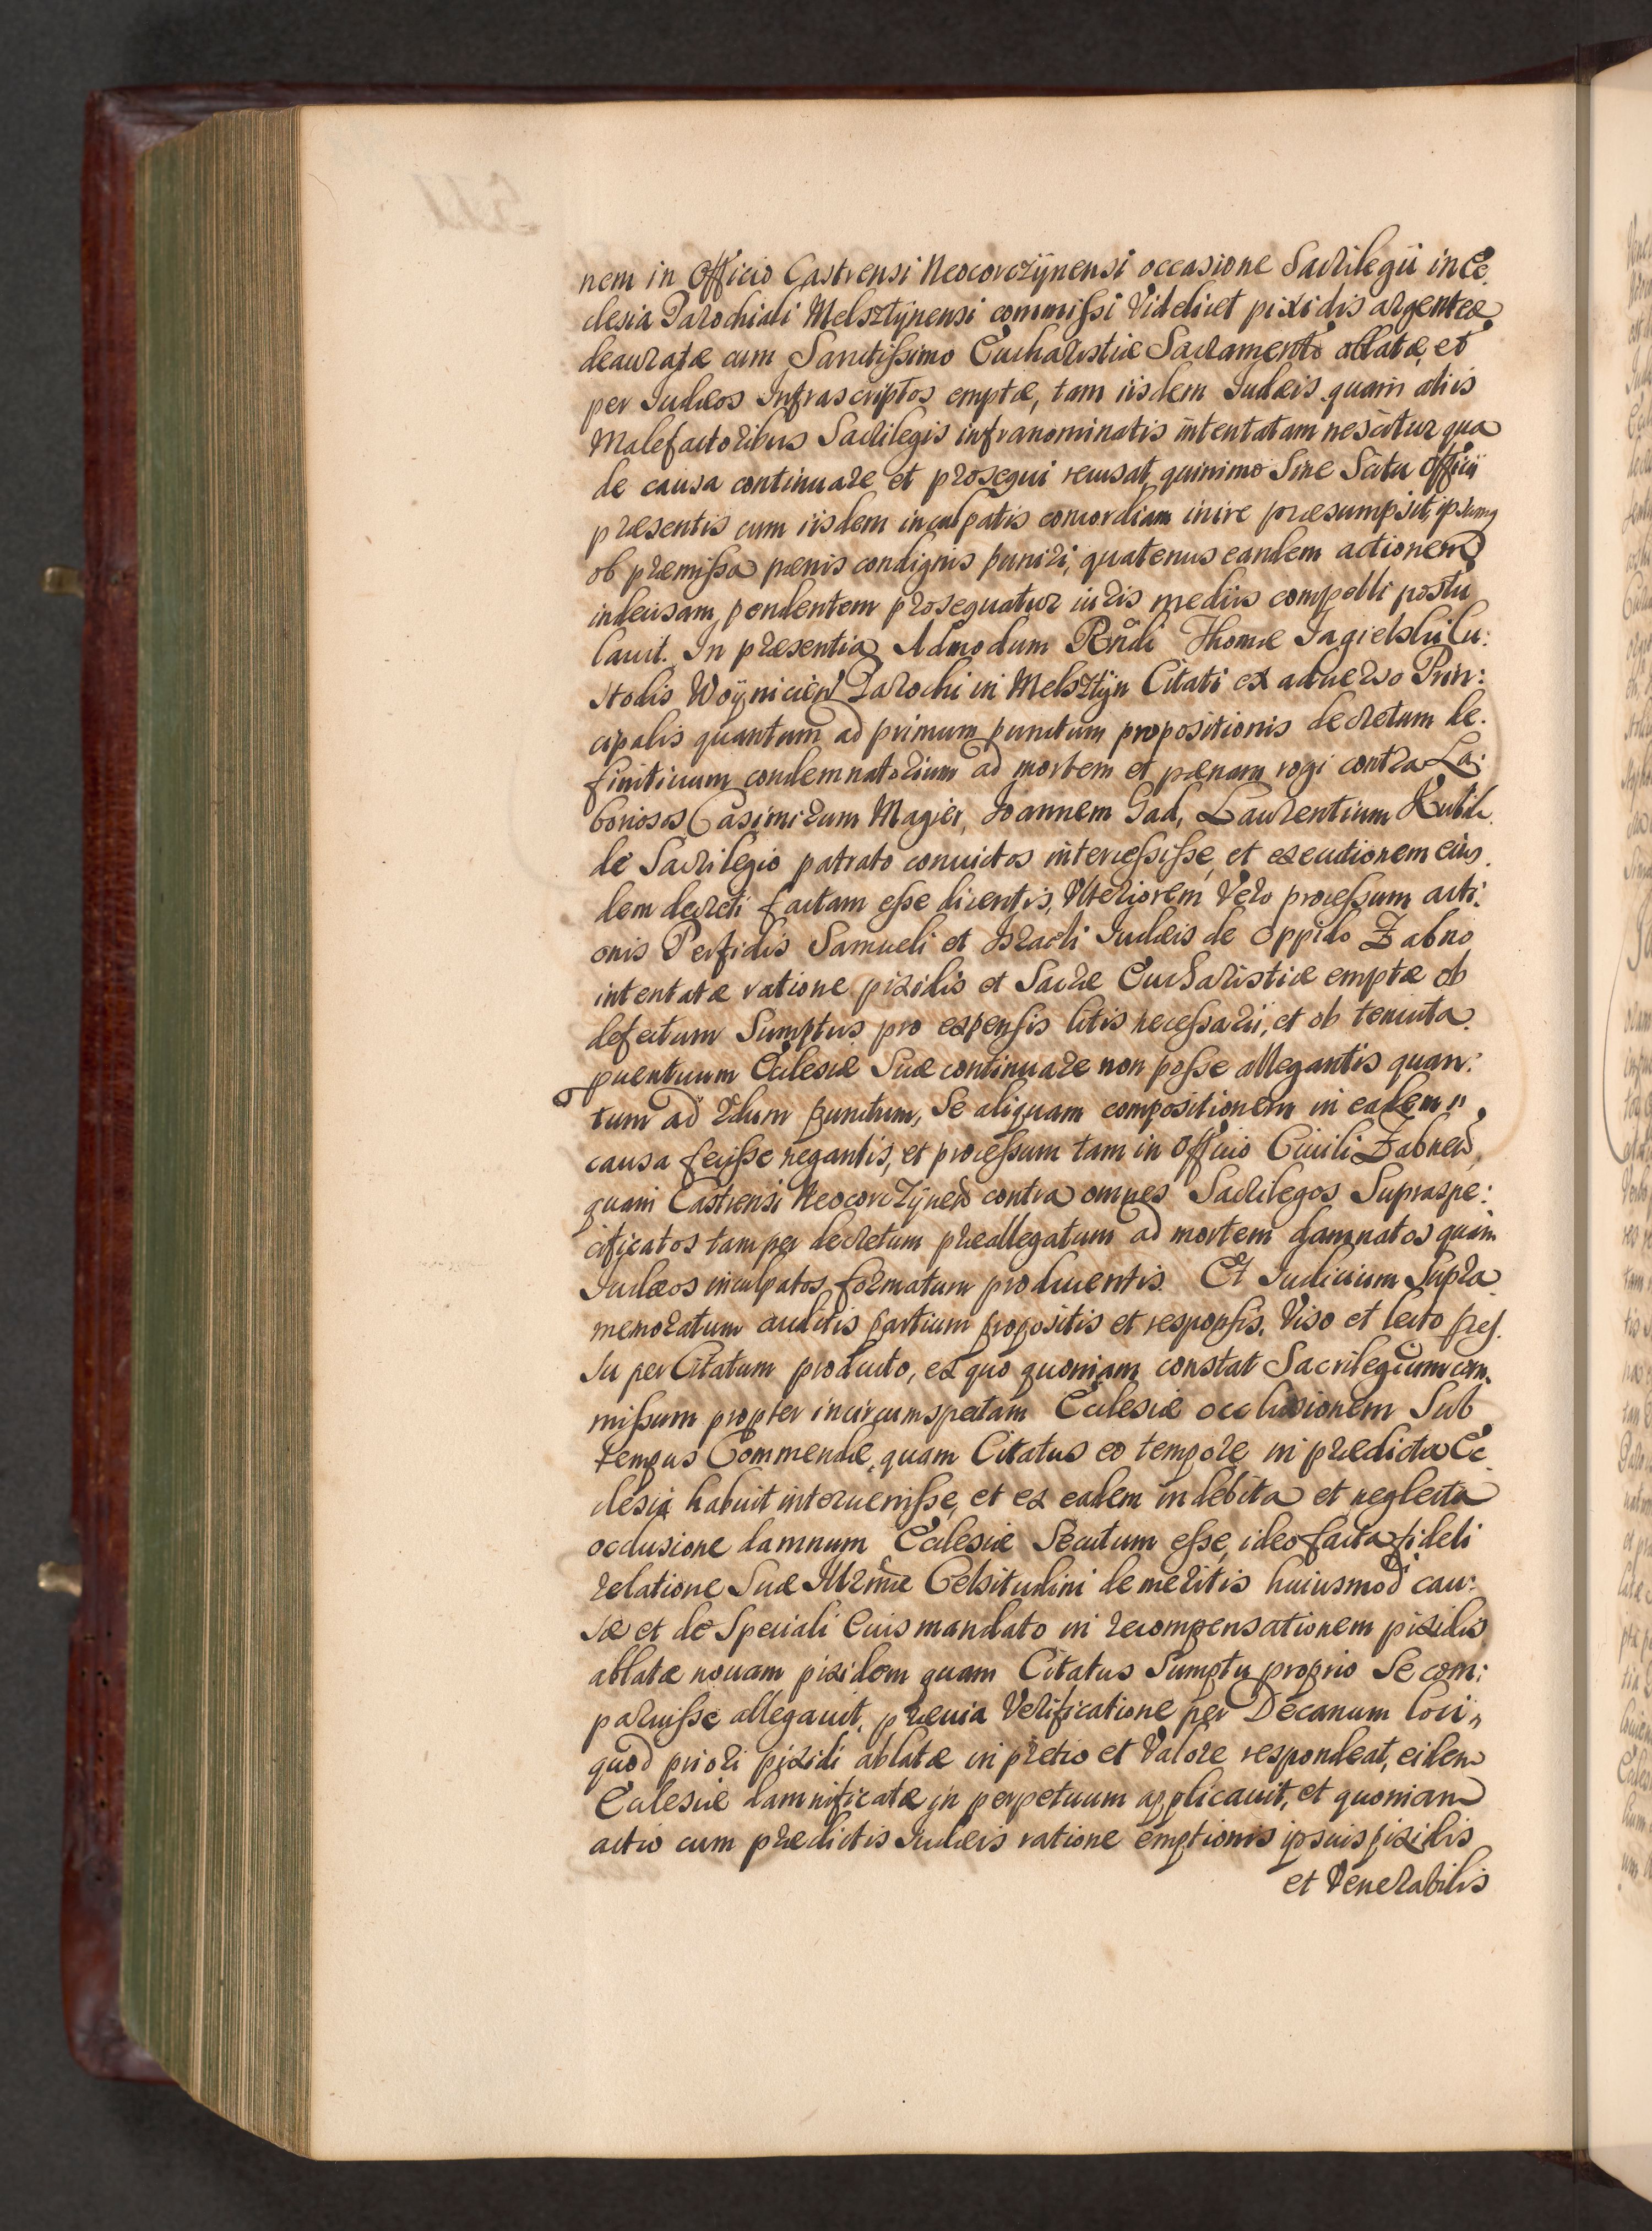 nem in Officio Castrensi Neocorczÿnensi occasione Sacrilegii in Ec.
clesia Parochiali Melsztÿnensi commissi Videlicet pixidis argenteæ
deauratæ cum Sanctissimo Eucharistiæ Sacramento ablatæ, et
per Iudæos Infrascriptos emptæ, tam iisdem Iudæis quam aliis
Malefactoribus Sacrilegis infranominatis intentatam nescitur qua
de causa continuare et prosequi recusat, quinimo Sine Scitu Officii
præsentis cum iisdem inculpatis concordiam inire præsumpsit, ipsumq
ob præmissa pænis condignis puniri, quatenus eandem actionem
indecisam, pendentem prosequatur iuris mediis compelli postu
lauit. In præsentia Admodum Rndi Thomæ Jagielski Cu:
stodis Woÿnicien Parochi in Melsztÿn Citati ex aduerso Prin:
cipalis quantum ad primum punctum propositionis decretum de.
finitiuum condemnatorium ad mortem et pænam rogi contra La:
boriosos Casimirum Magier, Joannem Gad, Laurentium Kubik
de Sacrilegio patrato conuictos intercessisse, et executionem eius
dem decreti factam esse dicentis, Vlteriorem Vero processum acti:
onis Perfidis Samueli et Israeli Iudæis de Oppido Zabno
intentatæ ratione pixidis et Sacræ Eucharistiæ emptæ ob
defectum Sumptus pro expensis litis necessarii, et ob tenuita
puentuum Ecclesiæ Suæ continuare non posse allegantis quan:
tum ad 2dum punctum, Se aliquam compositionem in eadem
causa fecisse negantis, et processum tam in Officio Ciuili Zabnen,
quam Castrensi Neocorczÿnen contra omnes Sacrilegos Supraspe:
cificatos tam per decretum præallegatum ad mortem damnatos quam
Iudæos inculpatos formatum producentis. Et Iudicium Supra
memoratum auditis partium propositis et responsis. Viso et lecto proces.
su per Citatum producto, ex quo quoniam constat Sacrilegium com.
missum propter incircumspectam Ecclesiæ occlusionem Sub
tempus Commendæ, quam Citatus eo tempore in prædicta Ec
clesia habuit interuenisse, et ex eadem indebita et neglecta
occlusione damnum Ecclesiæ Secutum esse, ideo facta fideli
relatione Suæ Illrmæ Celsitudini de meritis huiusmodi cau:
sæ et de Speciali Euis mandato in recompensationem pixidis
ablatæ nouam pixidem quam Citatus Sumptu proprio Se com:
paruisse allegauit, præuia Verificatione per Decanum loci,
quod priori pixidi ablatæ in pretio et Valore respondeat, eidem
Ecclesiæ damnificatæ in perpetuum applicauit, et quoniam
actio cum prædictis Iudæis ratione emptionis ipsius pixidis
et Venerabilis